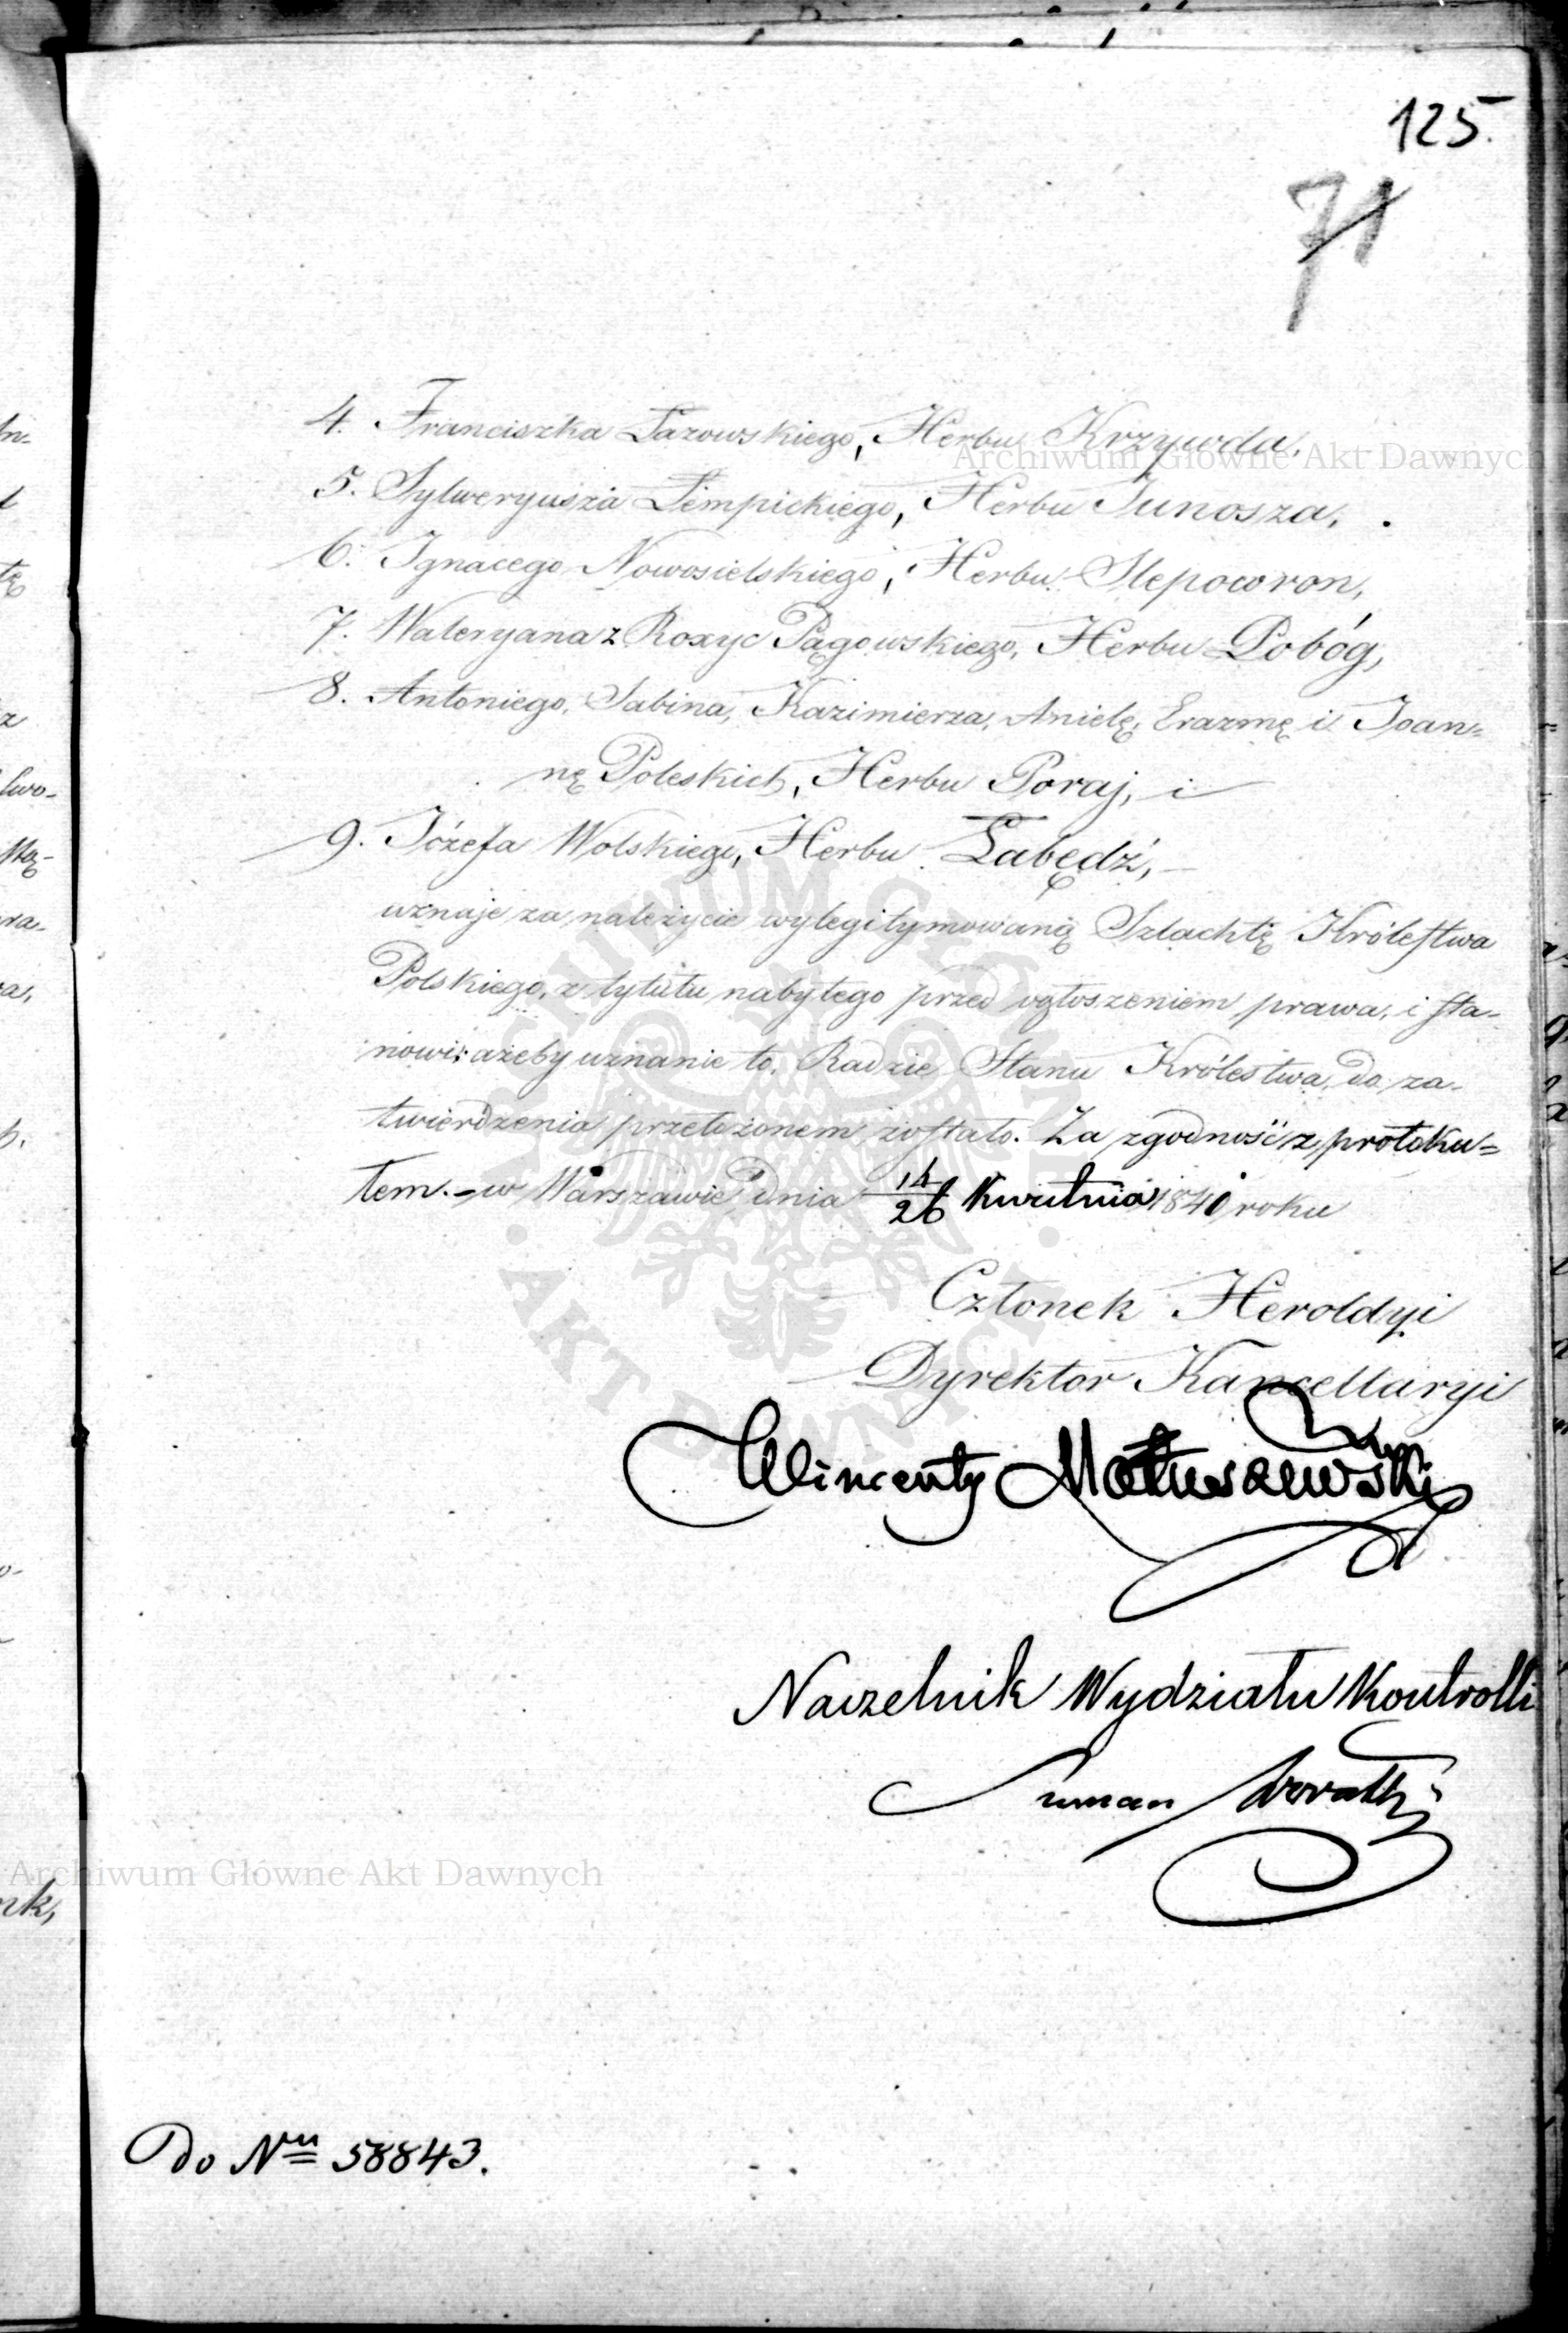 125.
71
4. Franciszka Łazowskiego, Herbu Krzywda,
5. Sylweryusza Łempickiego, Herbu Junosza,
6. Ignacego Nowosielskiego, Herbu Slepowron,
7. Waleryana z Roxyc Pągowskiego, Herbu Pobóg,
8. Antoniego, Sabina, Kazimierza, Anielę, Erazmę i Joan=
nę Poleskich, Herbu Poraj, i
9. Józefa Wolskiego, Herbu Łabędź,
uznaje za należycie wylegitymowaną Szlachtę Królestwa
Polskiego, z tytułu nabytego przed ogłoszeniem prawa, i sta-
nowi: ażeby uznanie to, Radzie Stanu Królestwa, do za-
twierdzenia przełożonem zostało. Za zgodność z protoku=
łem. - w Warszawie dnia 14/26 Kwietnia 1841 roku
Członek Heroldyi
Dyrektor Kancellaryi
Wincenty Matuszewski
Naczelnik Wydziału Kontrolli
Do Nru 58843.
Archiwum Główne Akt Dawnych
Archiwum Główne Akt Dawnych
ARCHIWUM GŁÓWNE · AKT DAWNYCH ·